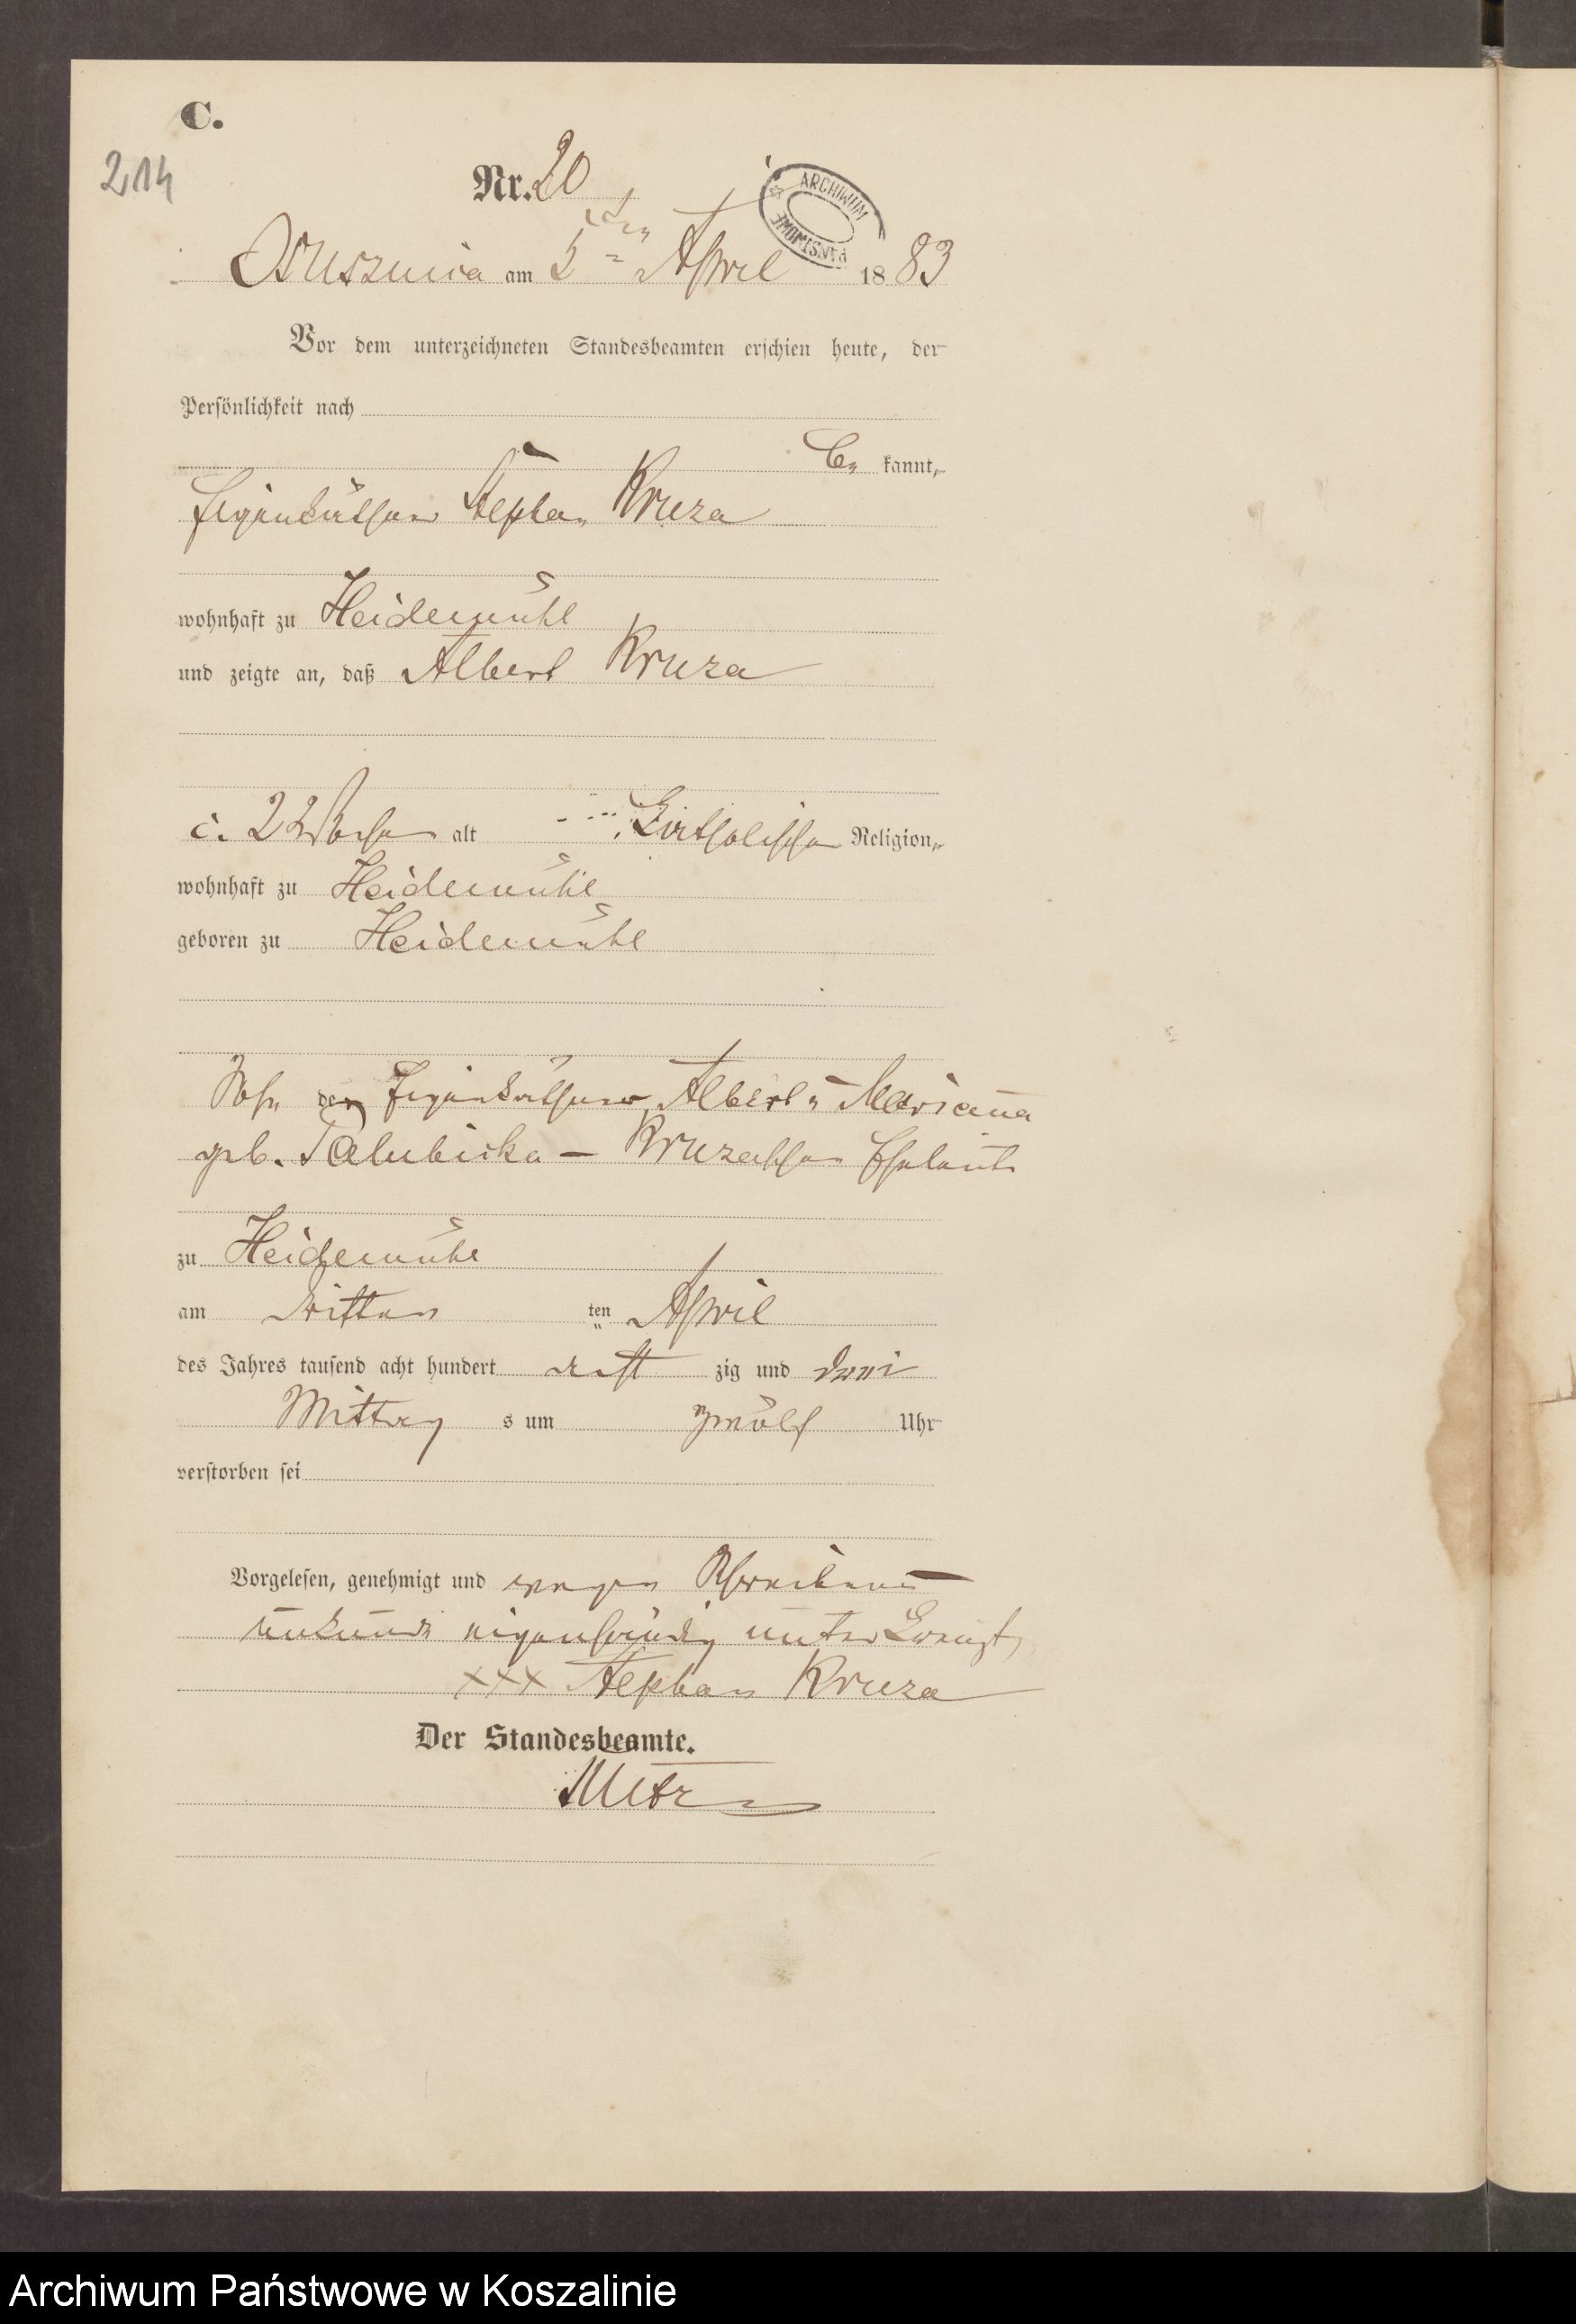 C.
214
Nr. 20
ARCHIWUM PAŃSTWOWE
Ossusznica am 5ten April 1883
Vor dem unterzeichneten Standesbeamten erschien heute, der
Persönlichkeit nach
be kannt,
Eigenkäthner Stephan Kruza
wohnhaft zu Heidemühl
und zeigte an, daß Albert Kruza
c. 2 Wochen alt katholischer Religion,
wohnhaft zu Heidemühl
geboren zu Heidemühl
Sohn der Eigenkäthner Albert u Marianna
geb. Talubicka – Kruzaschen Eheleute
zu Heidemühl
am dritten ten April
des Jahres tausend acht hundert acht zig und drei
Mittag s um zwölf Uhr
verstorben sei
Vorgelesen, genehmigt und wegen Schreibens
unkunde eigenhändig unterkreuzt
xxx Stephan Kruza
Der Standesbeamte.
Archiwum Państwowe w Koszalinie